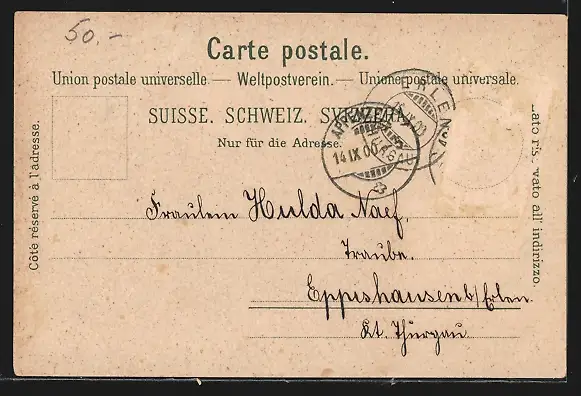 50.-
Carte postale.
Union postale universelle. — Weltpostverein. — Unione postale universale.
SUISSE. SCHWEIZ. SVIZZERA.
Nur für die Adresse.
Côté réservé à l'adresse.
Lato ris vato all' indirizzo.
ERLEN
15.IX.00
APPENZELL
14 IX 00
Fräulein Hulda Naef.
Traube.
Eppishausen b/Erlen.
Kt. Thurgau.